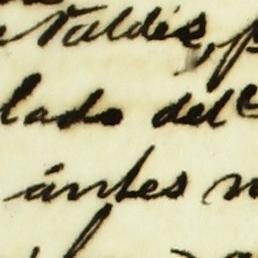 Valdés, p
lado del
ántes n